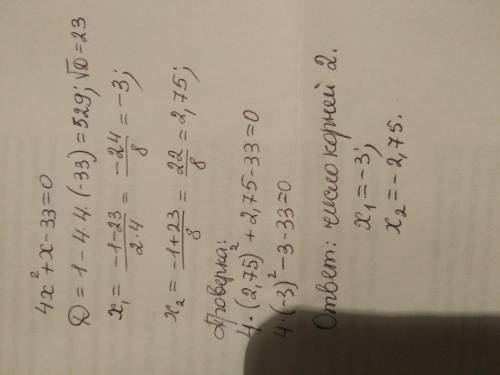 4x²+x-33=0
D=1-4·4·(-33)=529; √D=23
x₁ = (-1-23)/(2·4) = (-24)/8 = -3;
x₂ = (-1+23)/8 = 22/8 = 2,75;
Проверка:
4·(2,75)²+2,75-33=0
4·(-3)²-3-33=0
Ответ: число корней 2.
x₁=-3;
x₂=-2,75.